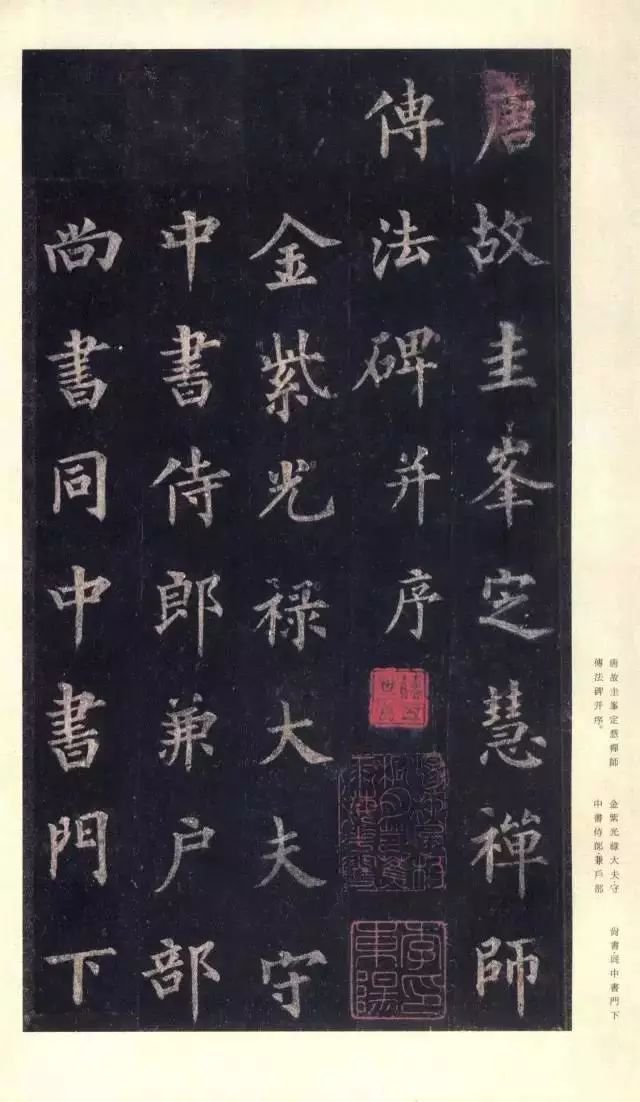 唐故圭峯定慧禪師
傳法碑并序
金紫光祿大夫守
中書侍郎兼户部
尚書同中書門下
唐故圭峯定慧禪師
傳法碑并序。
金紫光祿大夫守
中書侍郎、兼戶部
尚書、同中書門下